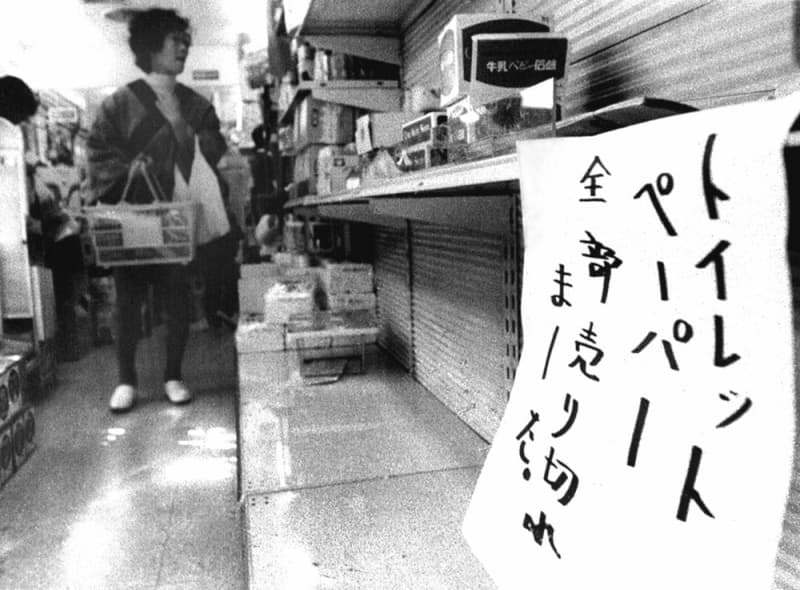 トイレット
ペーパー
全部売り切れ
ました。
牛乳ベビー石鹸